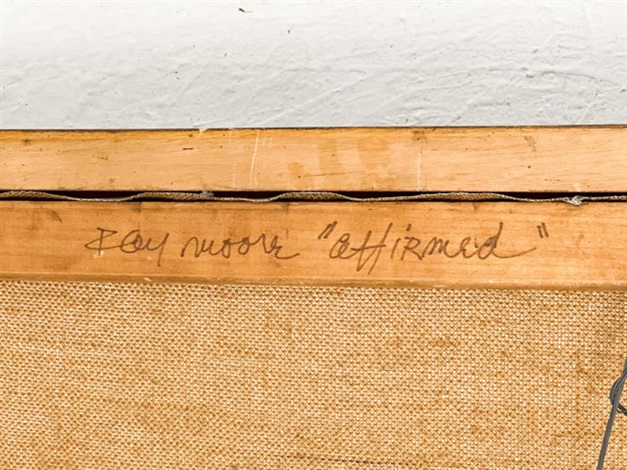 Ray Moore "Affirmed"